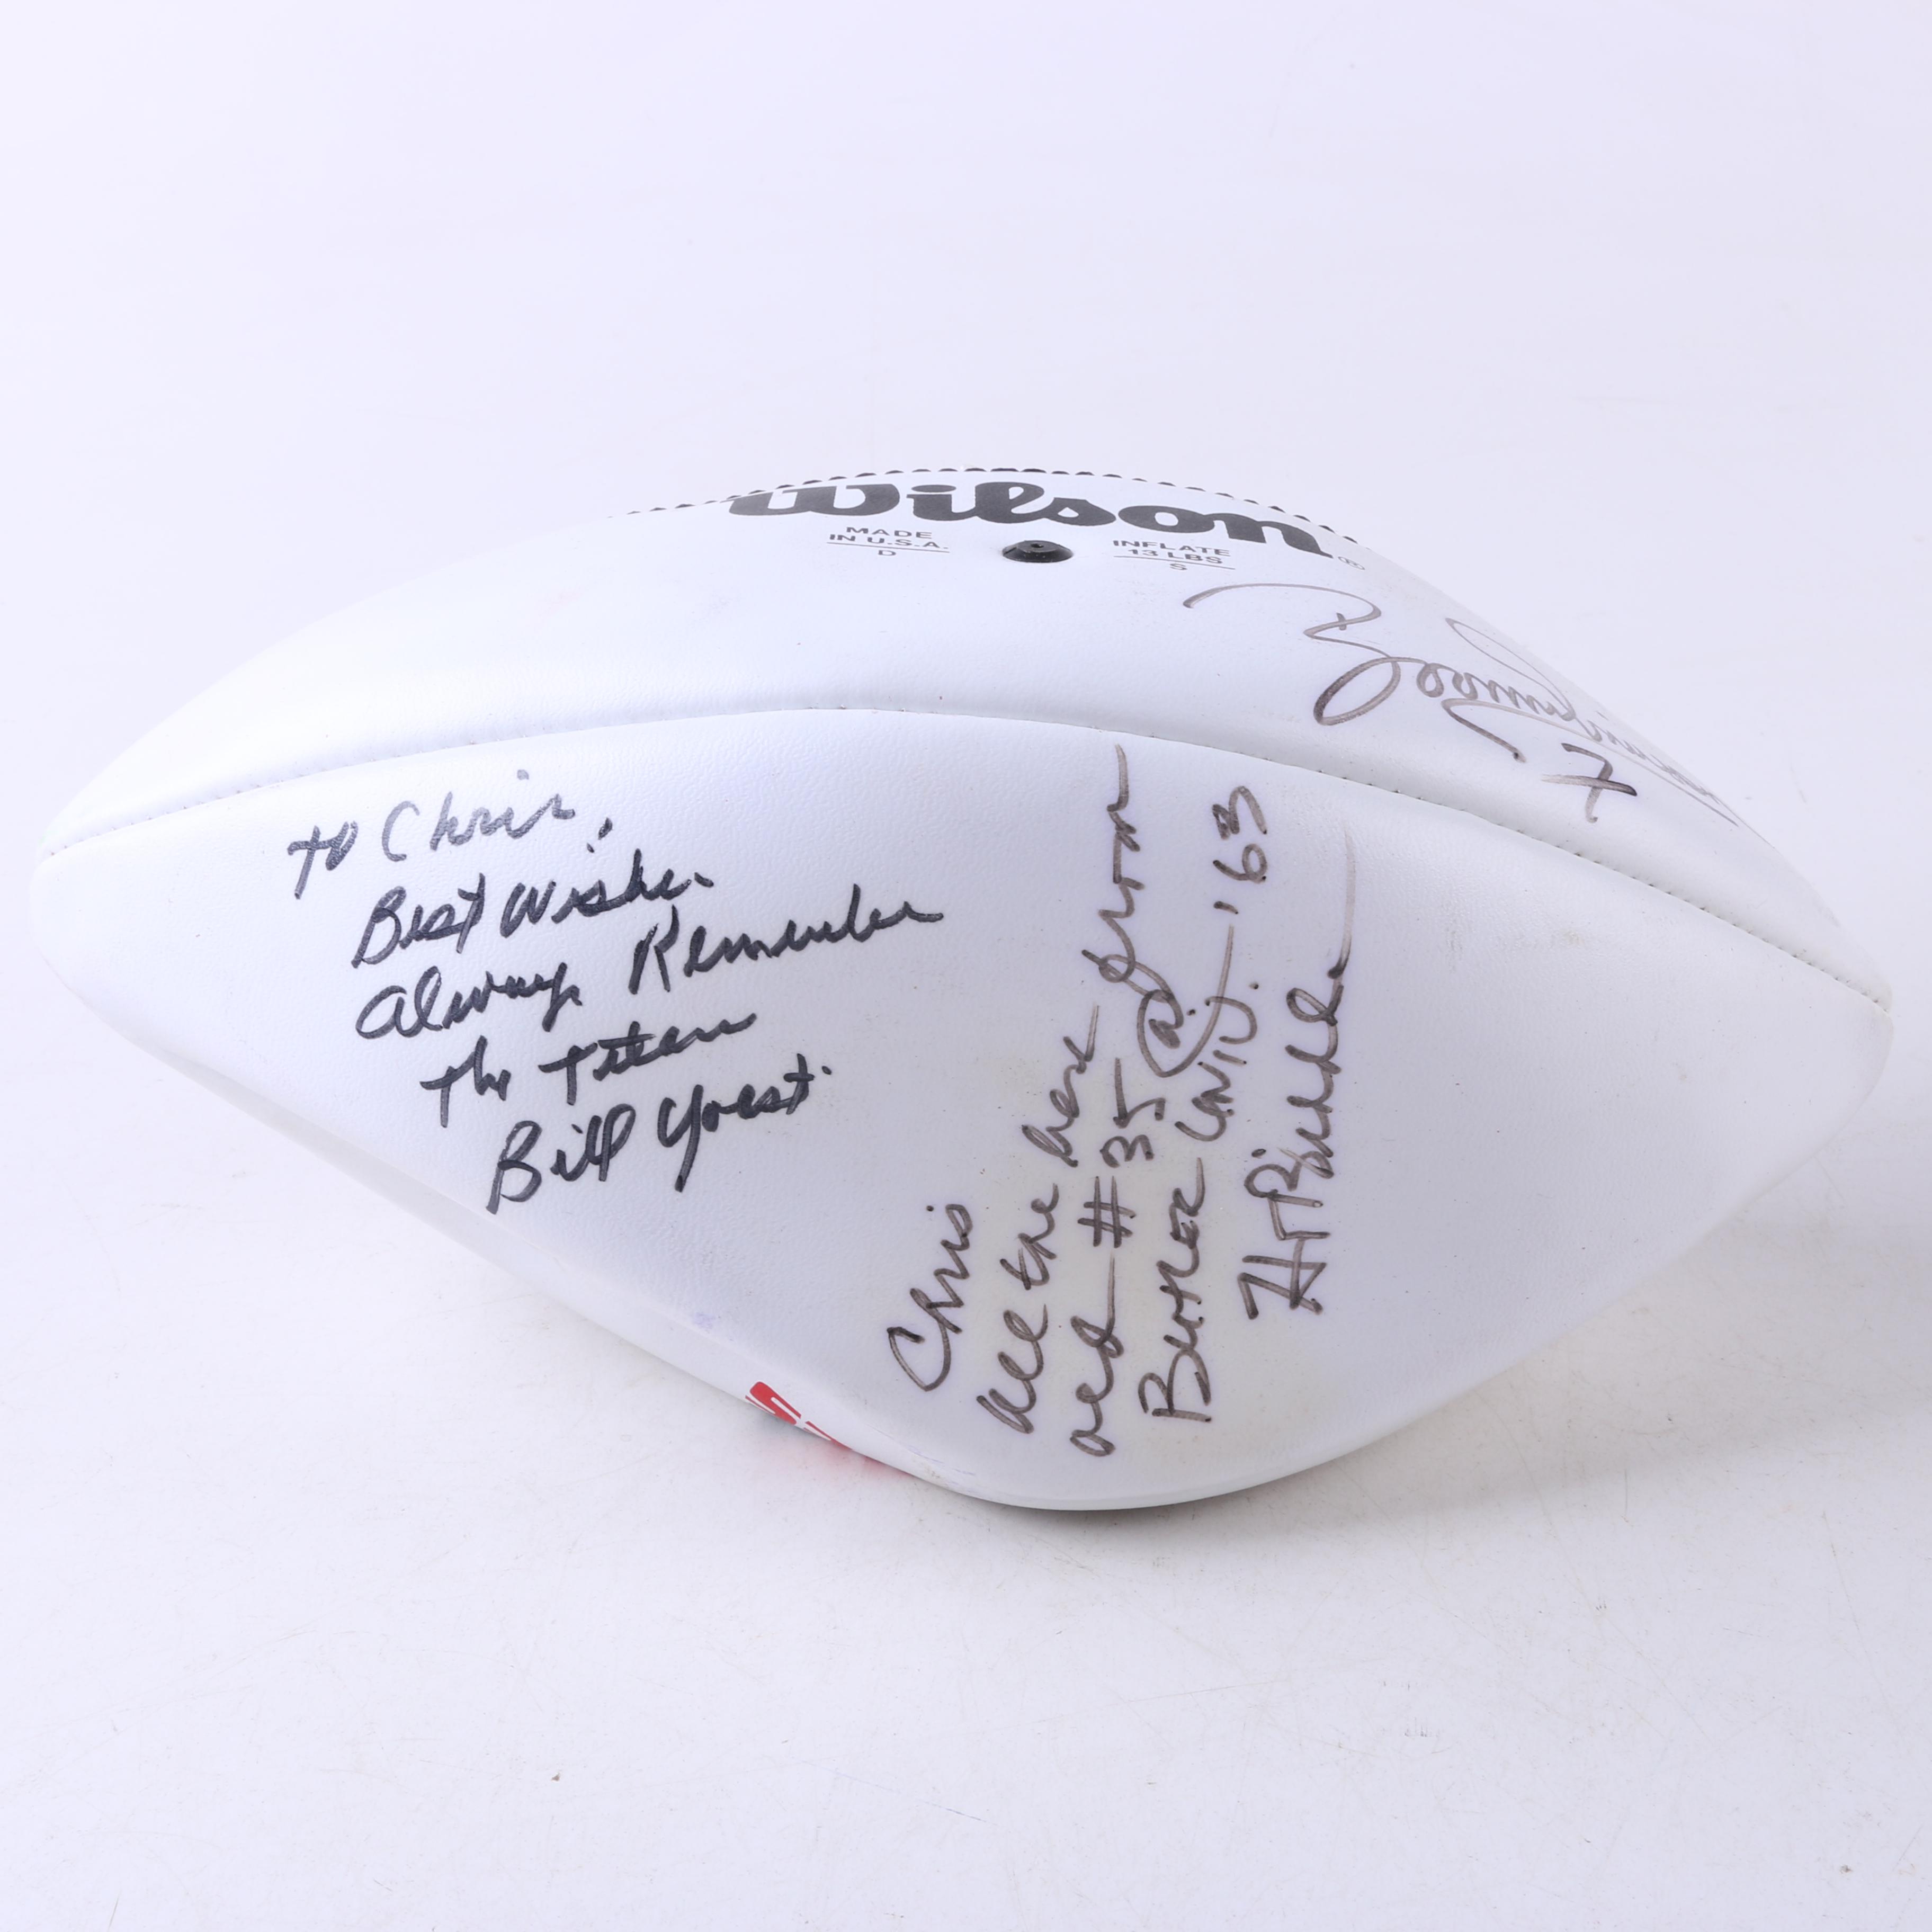 Wilson®
MADE
IN U.S.A.
D
INFLATE
13 LBS
S
Boomer
7
To Chris,
Best Wishes
Always Remember
The Titans
Bill Yoast
Chris
All the best from
old #35 @
Butler Univ. '63